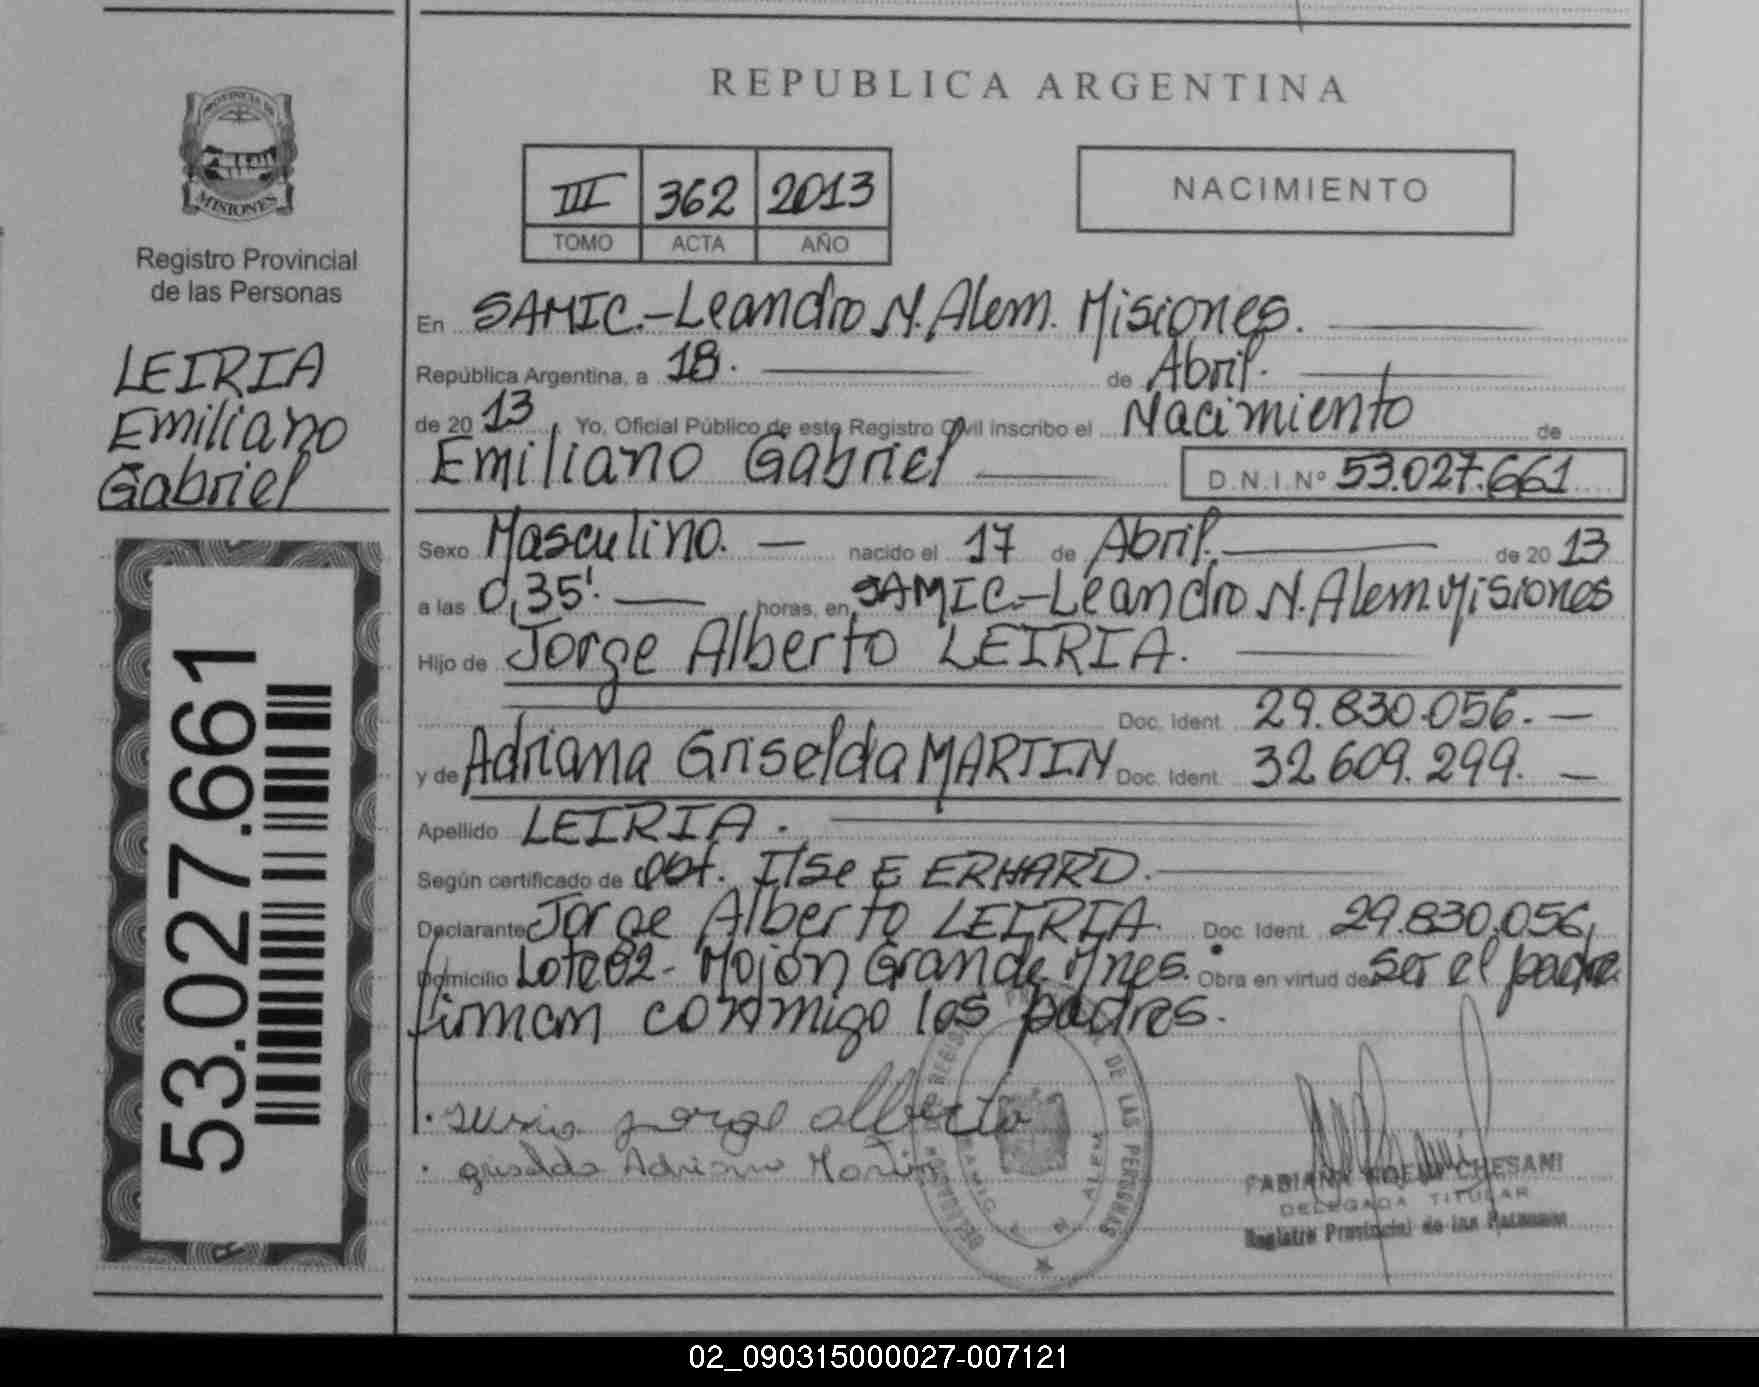 PROVINCIA DE
MISIONES
Registro Provincial
de las Personas
LEIRIA
Emiliano
Gabriel
53.027.661
REPUBLICA ARGENTINA
III 362 2013
TOMO ACTA AÑO
NACIMIENTO
En SAMIC.-Leandro N. Alem. Misiones.
República Argentina, a 18. de Abril.
de 2013, Yo, Oficial Público de este Registro Civil inscribo el Nacimiento de
Emiliano Gabriel D.N.I. Nº 53.027.661
Sexo Masculino. nacido el 17 de Abril. de 2013
a las 0,35'. horas, en SAMIC.-Leandro N. Alem. Misiones
Hijo de Jorge Alberto LEIRIA.
Doc. Ident. 29.830.056.
y de Adriana Griselda MARTIN Doc. Ident. 32.609.299.
Apellido LEIRIA.
Según certificado de Obt. Ilse E ERHARD.
Declarante Jorge Alberto LEIRIA. Doc. Ident. 29.830.056,
Domicilio Lote 82- Mojón Grande. Mnes. Obra en virtud de Ser el padre
firman conmigo los padres.
jorge alberto
griselda Adriana Martin
DE LAS PERSONAS
N ALEM
FABIANA NOEMI CHESANI
DELEGADA TITULAR
Registro Provincial de las Personas
02_090315000027-007121